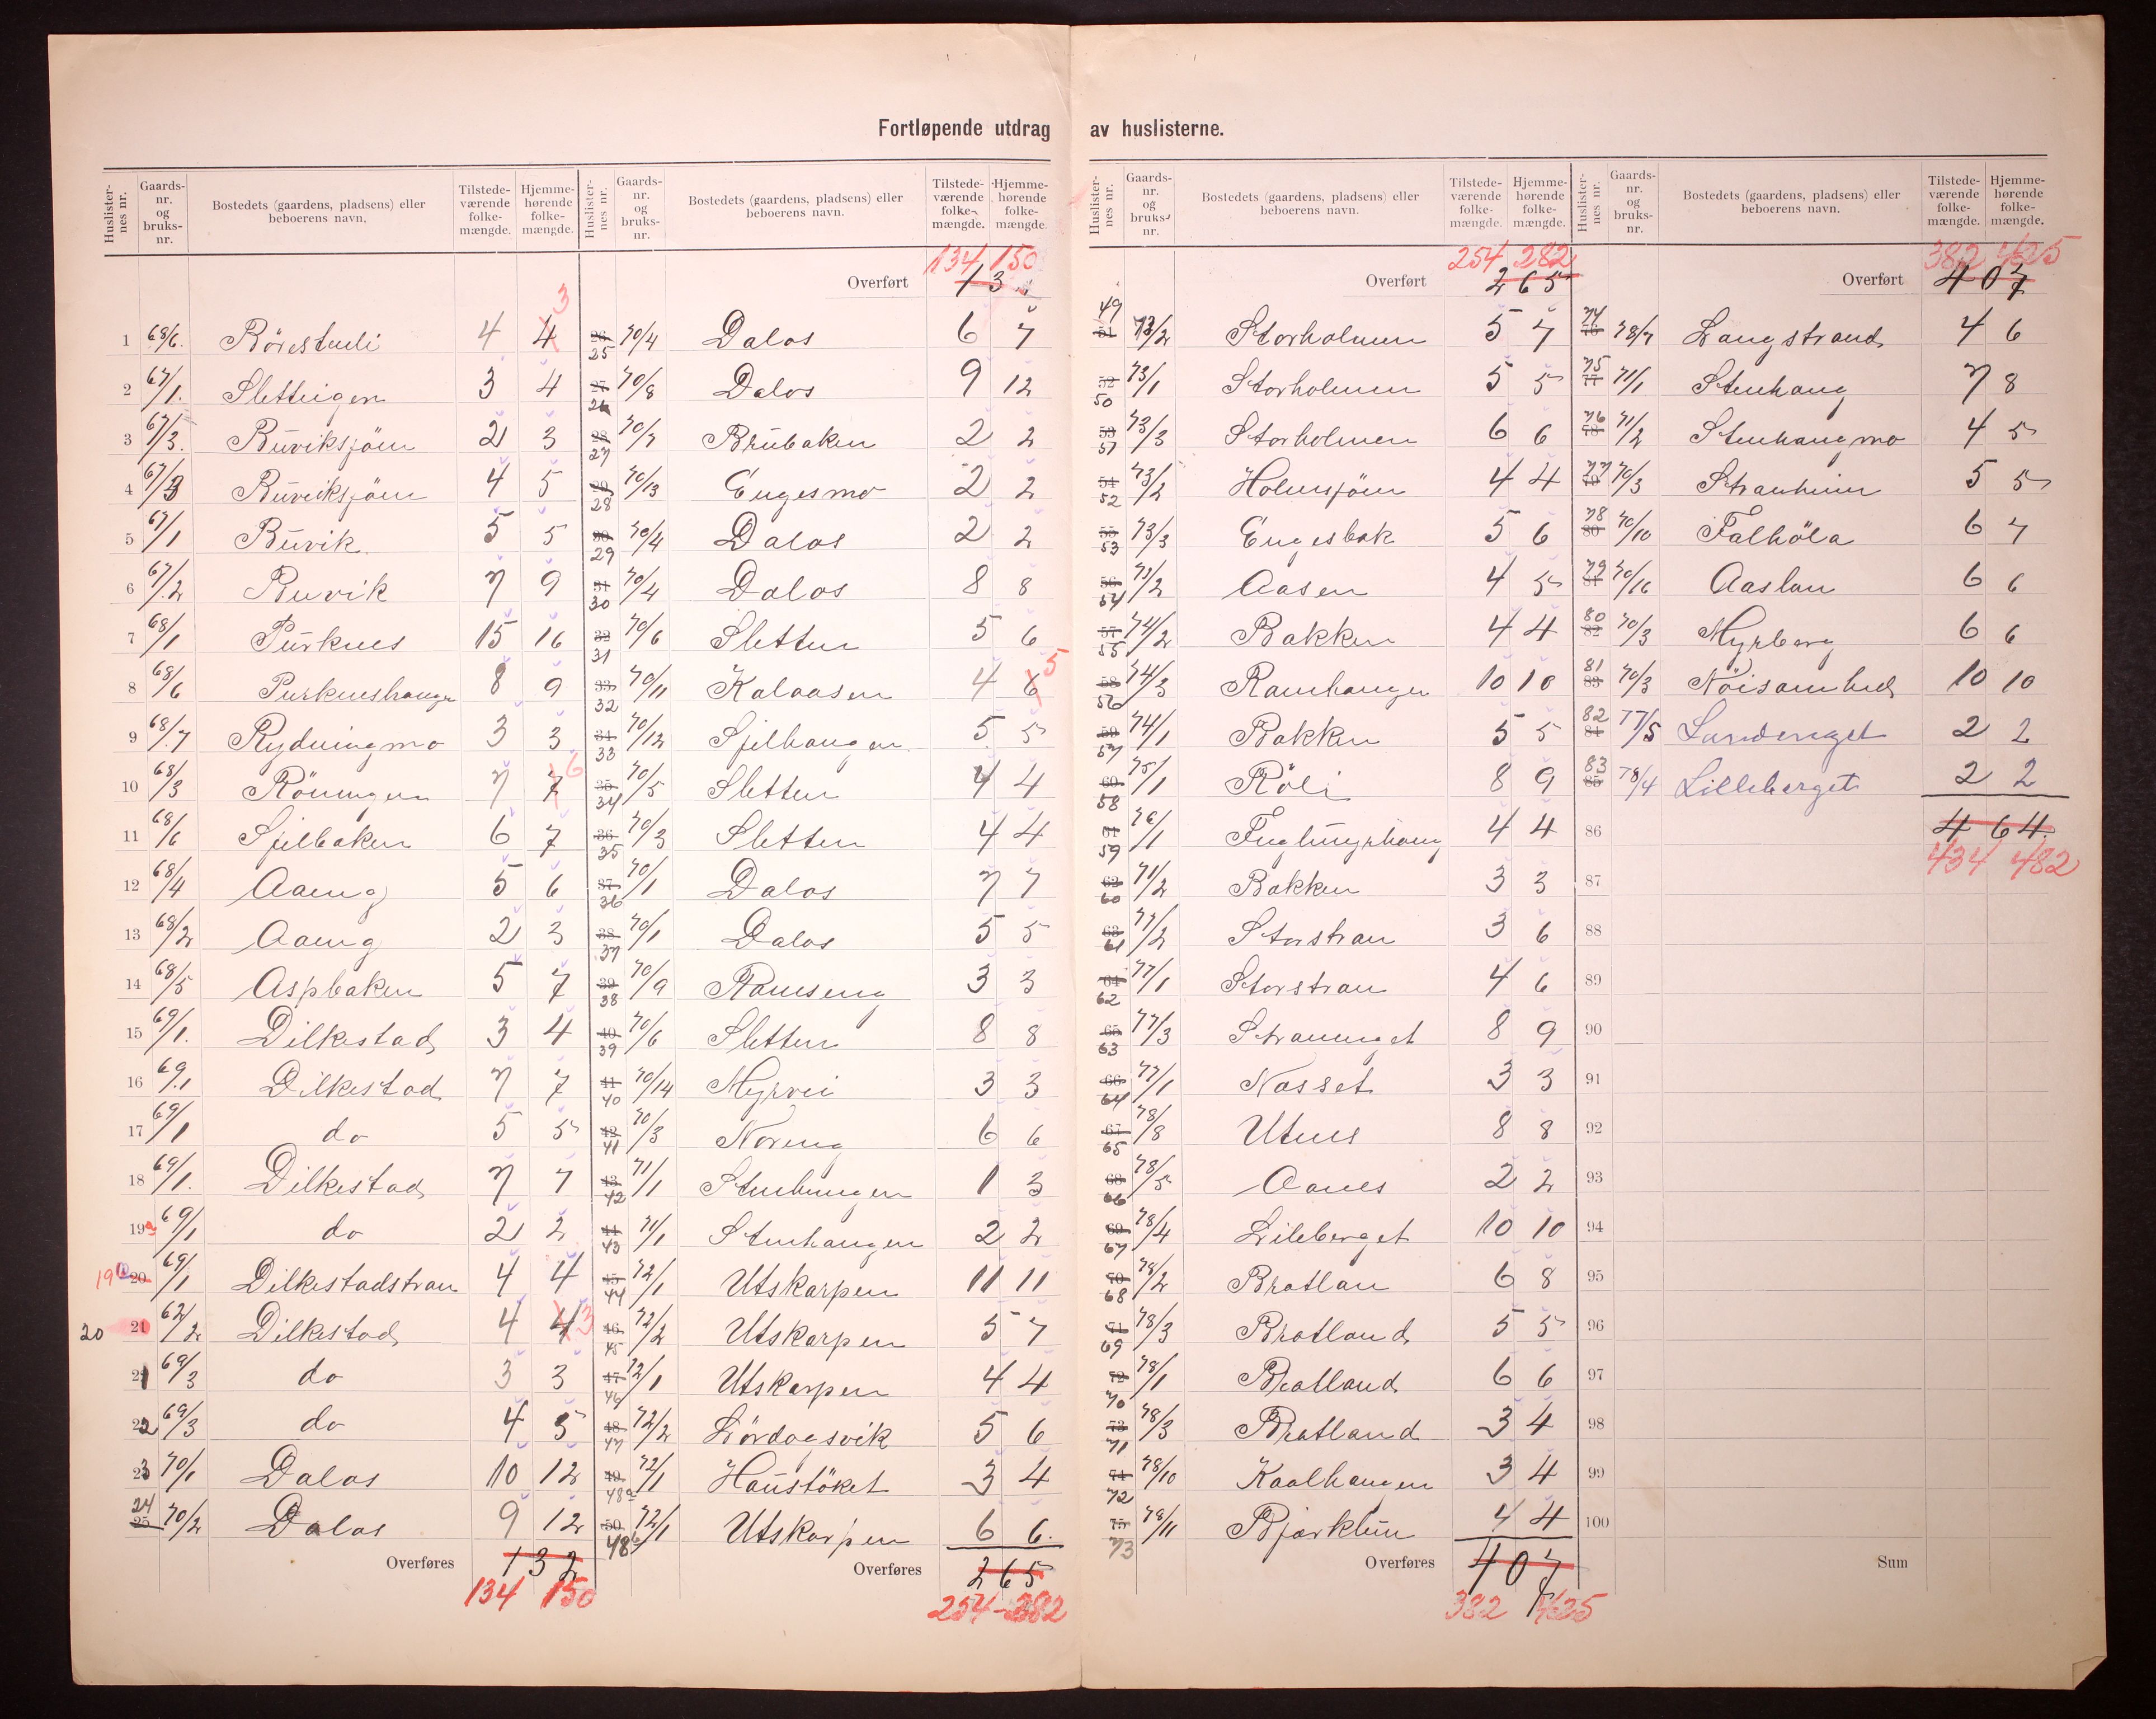 Fortløpende utdrag av huslisterne.
Huslister-nes nr. Gaards-nr. og bruks-nr. Bostedets (gaardens, pladsens) eller beboerens navn. Tilstede-værende folke-mængde. Hjemme-hørende folke-mængde.
1 68/6. Rörestuli 4 4 3
2 67/1. Slettingen 3 4
3 67/3. Buviksjöen 2 3
4 67/3 Buviksjöen 4 5
5 67/1 Buvik 5 5
6 67/2 Buvik 7 9
7 68/1 Purknes 15 16
8 68/6 Purkneshaugen 8 9
9 68/7 Rydningmo 3 3
10 68/3 Röningen 7 7 6
11 68/6 Sjelbaken 6 7
12 68/4 Aaeng 5 6
13 68/2 Aaeng 2 3
14 68/5 Aspbaken 5 7
15 69/1. Dilkestad 3 4
16 69.1 Dilkestad 7 7
17 69/1 do 5 5
18 69/1. Dilkestad 7 7
19a 69/1 do 2 2
19b 20 69/1 Dilkestadstran 4 4
20 21 62/2 Dilkestad 4 4 3
21 69/3 do 3 3
22 69/3 do 4 5
23 70/1 Dalos 10 12
24 25 70/2 Dalos 9 12
Overføres 132
134 150
Huslister-nes nr. Gaards-nr. og bruks-nr. Bostedets (gaardens, pladsens) eller beboerens navn. Tilstede-værende folke-mængde. Hjemme-hørende folke-mængde.
134 150
Overført 132
26 25 70/4 Dalos 6 7
27 26 70/8 Dalos 9 12
28 27 70/7 Brubaken 2 2
29 28 70/13 Engesmo 2 2
30 29 70/4 Dalos 2 2
31 30 70/4 Dalos 8 8
32 31 70/6 Sletten 5 6
33 32 70/11 Kalaasen 4 6 5
34 33 70/12 Sjelhaugen 5 5
35 34 70/5 Sletten 4 4
36 35 70/3 Sletten 4 4
37 36 70/1 Dalos 7 7
38 37 70/1 Dalos 5 5
39 38 70/9 Ramseng 3 3
40 39 70/6 Sletten 8 8
41 40 70/14 Myrvei 3 3
42 41 70/3 Noreng 6 6
43 42 71/1 Stenhaugen 1 3
44 43 71/1 Stenhaugen 2 2
45 44 72/1 Utskarpen 11 11
46 45 72/2 Utskarpen 5 7
47 46 72/1 Utskarpen 4 4
48 47 72/2 Lördagsvik 5 6
49 48a 72/1 Haustöket 3 4
50 48b 72/1 Utskarpen 6 6.
Overføres 265
254 - 282
Huslister-nes nr. Gaards-nr. og bruks-nr. Bostedets (gaardens, pladsens) eller beboerens navn. Tilstede-værende folke-mængde. Hjemme-hørende folke-mængde.
254 282
Overført 265
49 51 73/2 Storholmen 5 7
52 50 73/1 Storholmen 5 5
53 51 73/3 Storholmen 6 6
54 52 73/2 Holmsjöen 4 4
55 53 73/3 Engesbak 5 6
56 54 71/2 Aasen 4 5
57 55 74/2 Bakken 4 4
58 56 74/3 Ramhaugen 10 10
59 57 74/1 Bakken 5 5
60 58 75/1 Röli 8 9
61 59 76/1 Fuglmyrhaug 4 4
62 60 71/2 Bakken 3 3
63 61 77/2 Storstran 3 6
64 62 77/1 Storstran 4 6
65 63 77/3 Stranenget 8 9
66 64 77/1 Nasset 3 3
67 65 78/8 Utnes 8 8
68 66 78/5 Aanes 2 2
69 67 78/4 Lileberget 10 10
70 68 78/2 Bratlan 6 8
71 69 78/3 Bratland 5 5
72 70 78/1 Bratland 6 6
73 71 78/3 Bratland 3 4
74 72 78/10 Kaalhaugen 3 4
75 73 78/11 Bjørklun 4 4
Overføres 407
382 425
Huslister-nes nr. Gaards-nr. og bruks-nr. Bostedets (gaardens, pladsens) eller beboerens navn. Tilstede-værende folke-mængde. Hjemme-hørende folke-mængde.
382 425
Overført 407
74 76 78/7 Langstrand 4 6
75 77 71/1 Stenhaug 7 8
76 78 71/2 Stenhaugmo 4 5
77 79 70/3 Stranheim 5 5
78 80 70/10 Falhöla 6 7
79 81 70/16 Aaslan 6 6
80 82 70/3 Myrberg 6 6
81 83 70/3 Nöisomhed 10 10
82 84 77/5 Sandenget 2 2
83 85 78/4 Lilleberget 2 2
86 464.
434 482
87
88
89
90
91
92
93
94
95
96
97
98
99
100
Sum